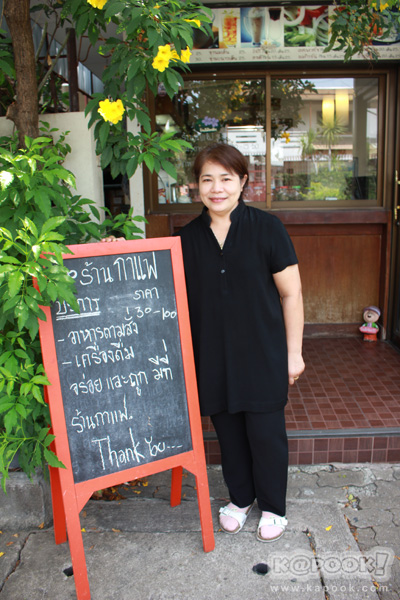 ร้านกาแฟ
บริการ ราคา
30-100
- อาหารตามสั่ง
- เครื่องดื่ม
อร่อยและถูก มีที่
ร้านกาแฟ.
Thank You...
K@POOK!
www.kapook.com